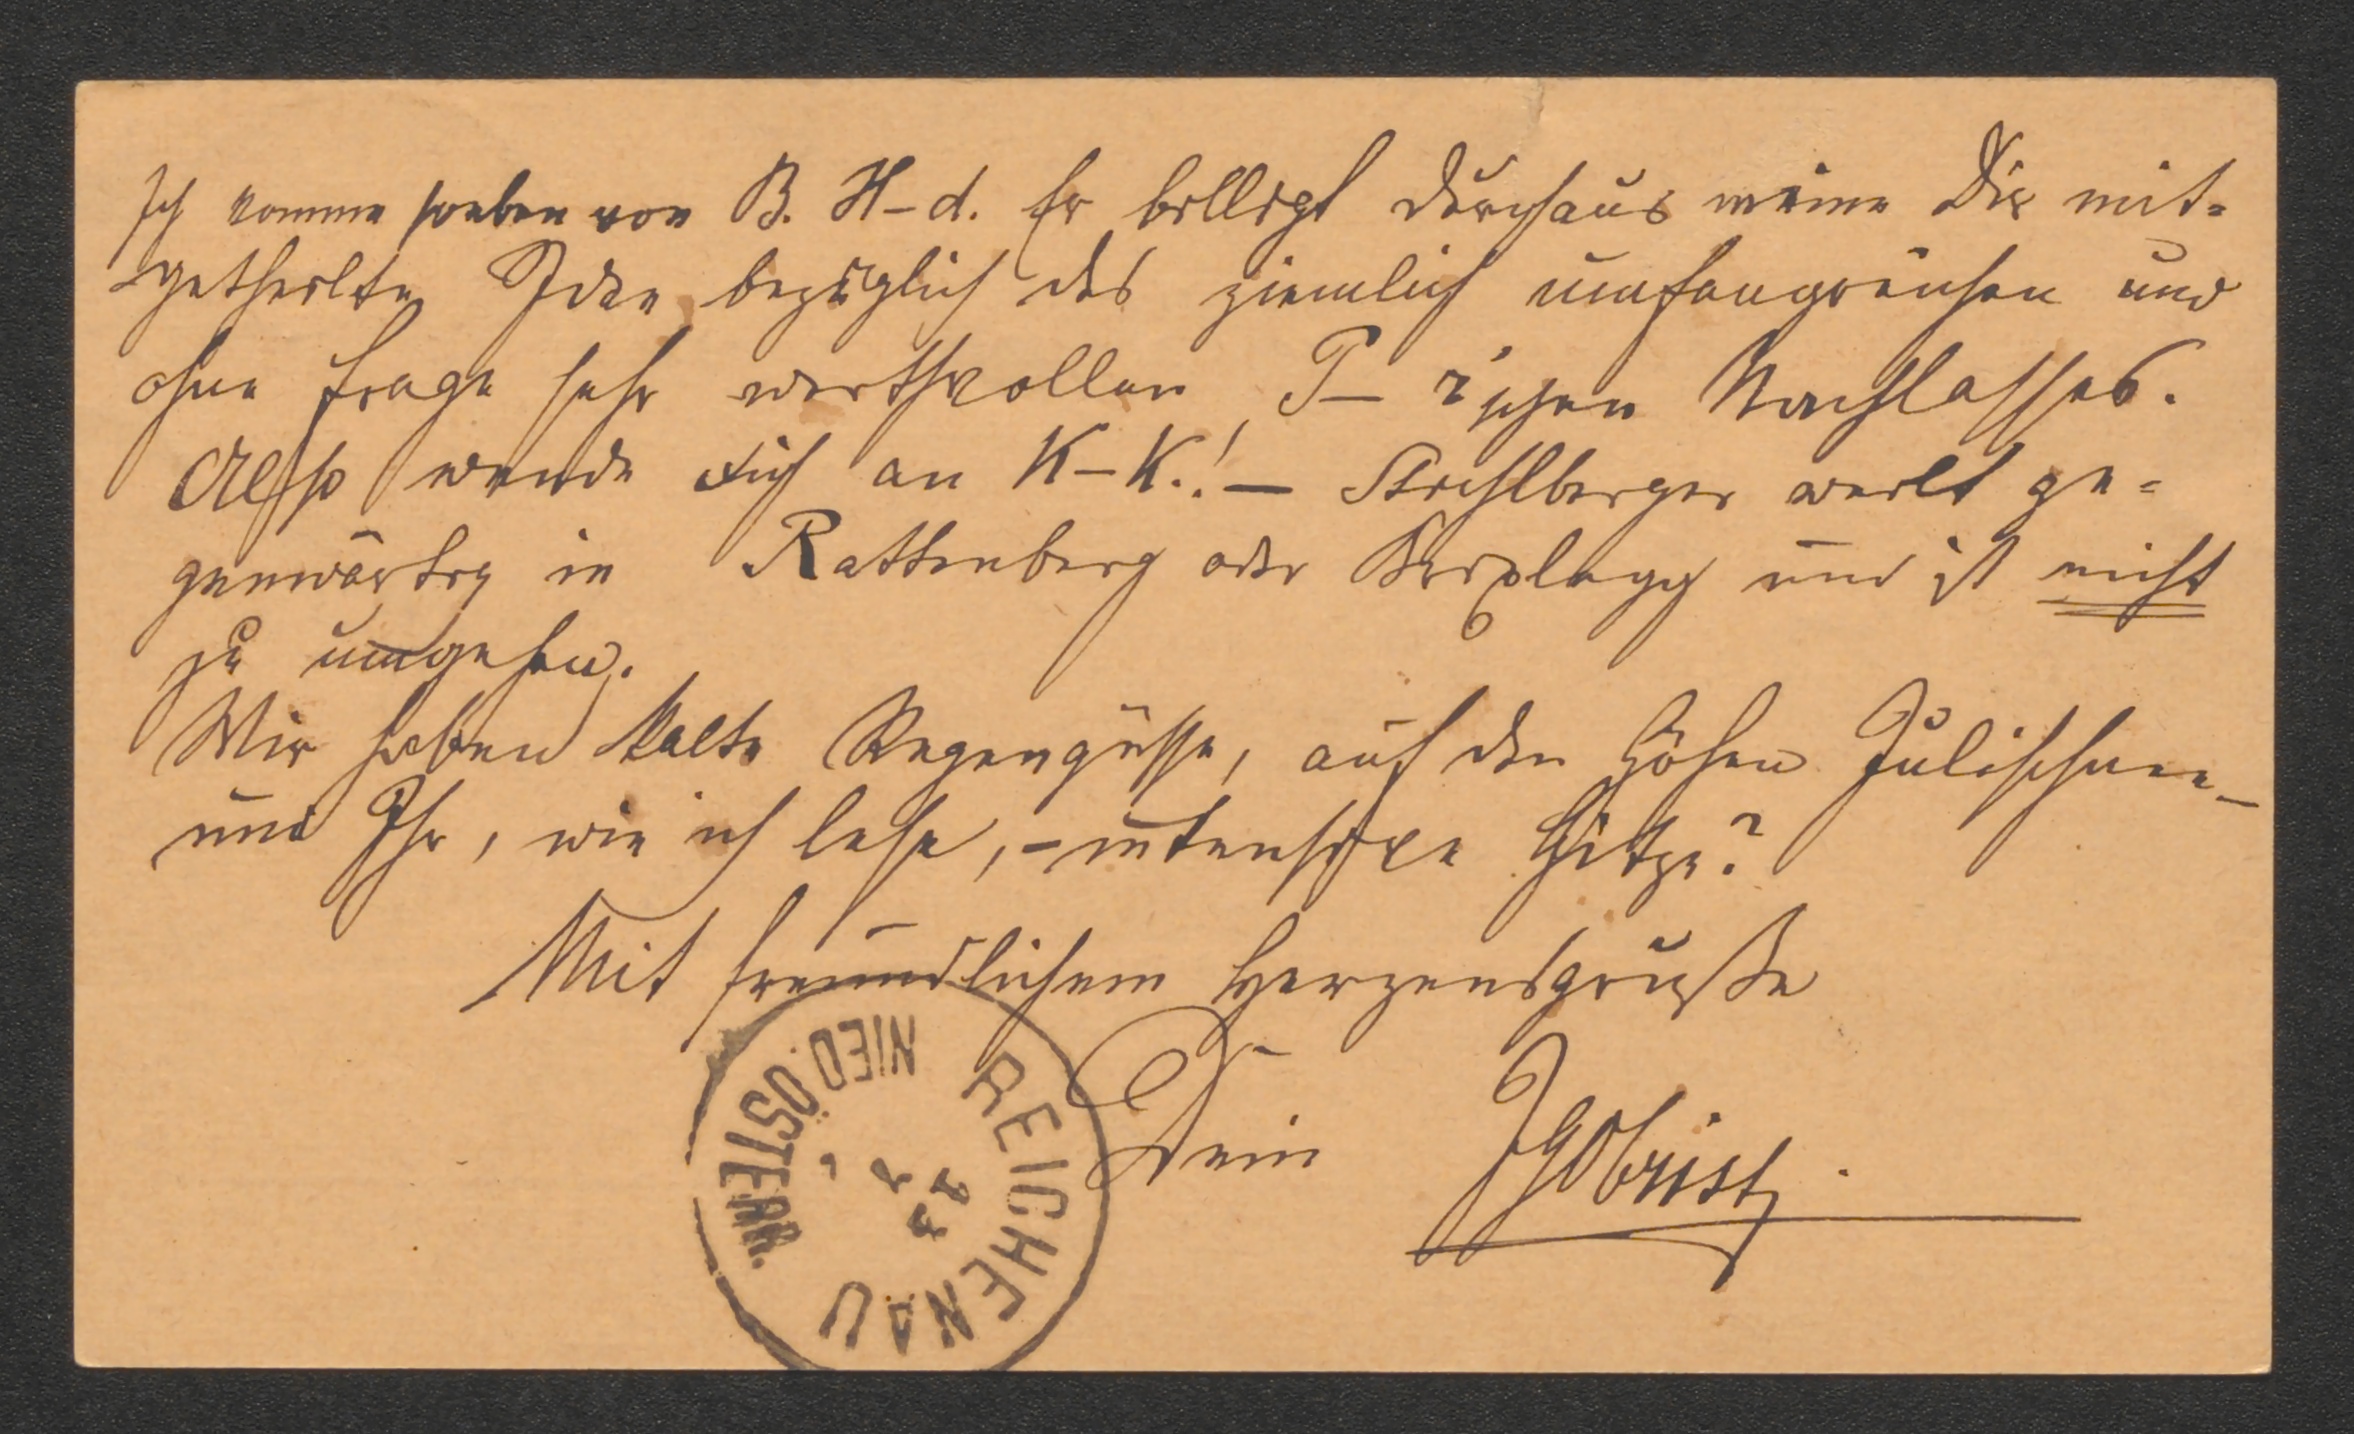 Ich komme soeben von B. H-d. Er billigt durchaus meine Dir mit-
getheilte Idee bezüglich des ziemlich umfangreichen und
ohne Frage sehr werthvollen P-r'schen Nachlasses.
Also wende Dich an K-K.! — Strehlberger weilt ge-
genwärtig in Rattenberg oder Brixlegg und ist nicht
zu umgehen.
Wir haben kalte Regengüsse, auf den Höhen Julischnee –
und Ihr, wie ich lese, – intensive Hitze?
Mit freundlichem Herzensgruße
Dein JGObrist.
REICHENAU
NIED. ÖSTERR.